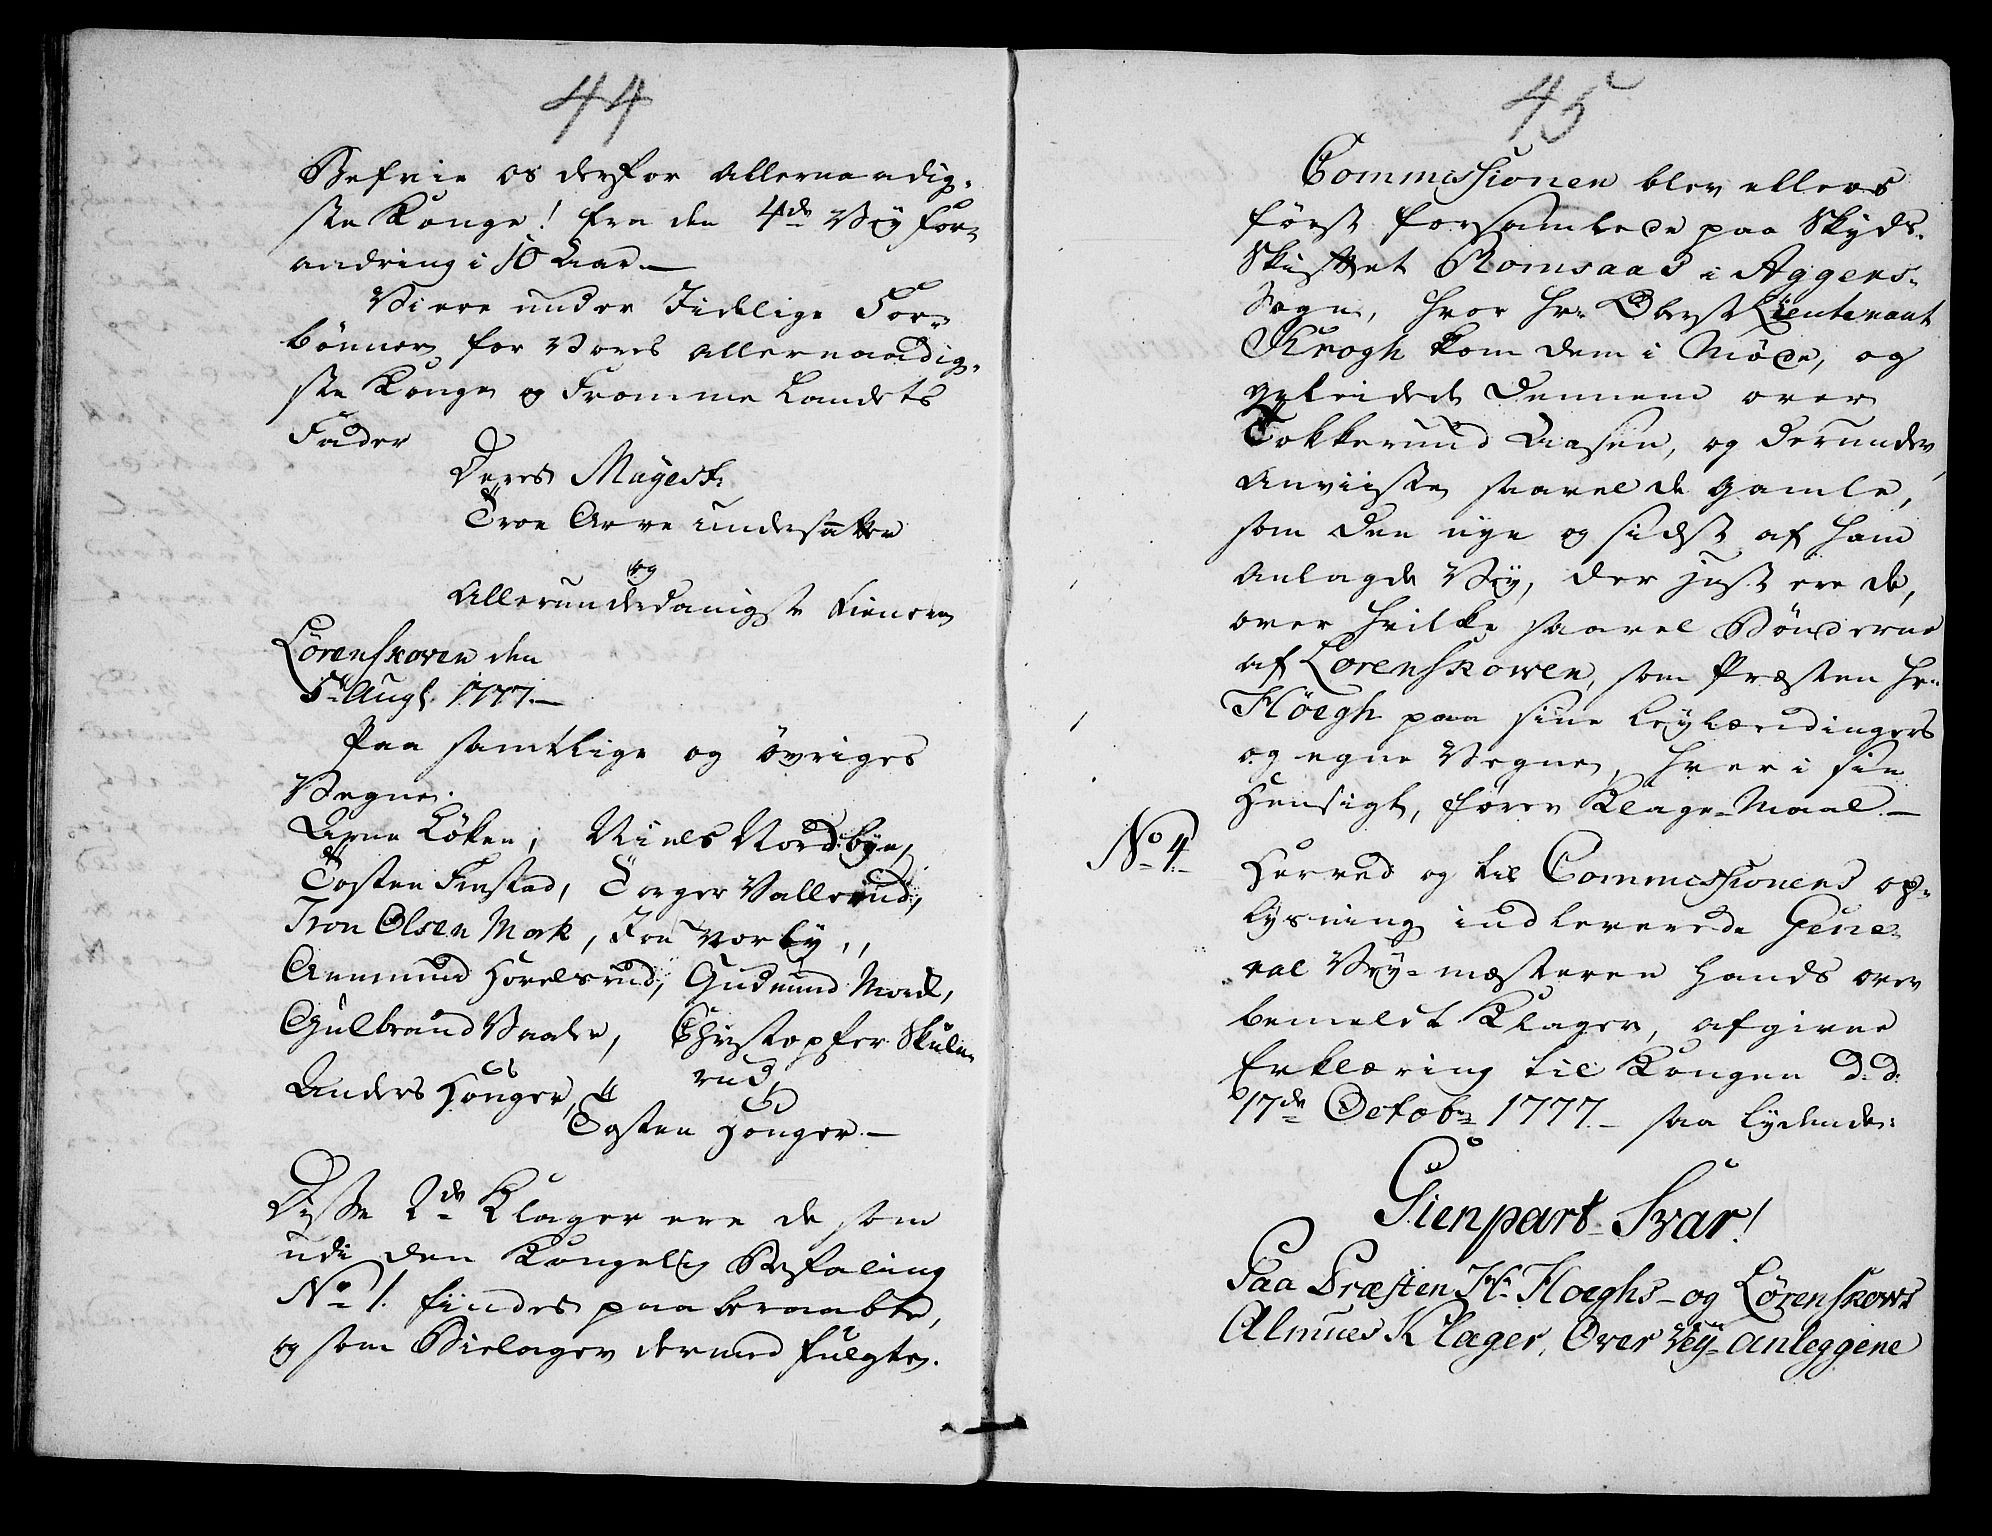 44
Befrie os derfor Allernaadig-
ste Konge! fra den 4de Vej for-
andring i 10 Aar.—
Vi ere under Idelige For-
bønner for Vores Allernaadig-
ste Konge og Fromme Landets
Fader
Deres Mayest:
Troe Arve undersatter
og
Allerunderdanigste Tienere
Lørenskoven den
5te Aug: 1777.—
Paa samtlige og øvriges
Vegne.
Arne Løken, Niels Nordbye,
Tosten Finstad, Torger Vallerud,
Iver Olsen Mork, Jon Norby,
Aemund Hovelsrud, Gudmund Mork,
Gulbrand Vaaler, Christopfer Skule-
rud,
Anders Honger,
Tosten Honger.—
Disse 2de Klager ere de som
udi den Kongelig Befaling
No 1. findes paaberaabte,
og som Bielager dermed fulgte.
45
Commissionen blev ellers
først forsamlede paa Skyds-
Skiftet Romsaas i Aggers-
Sogn, hvor Hr. Oberst Lieutenant
Krogh kom dem i Møde, og
geleidede Dennem over
Tokkerud Aasen, og derunder
Anviiste saavel de gamle,
som den nye og sidst af ham
Anlagde Vej, der just ere de,
over hvilke saavel Bønderne
af Lorenskowen, som Præsten Hr.
Høegh paa sine Leylændingers
og egne Vegne, hver i sin
Hensigt, fører Klage-Maal.—
No 4. Herved og til Commissionens op-
lysning indleverede Gene-
ral Vej-mæsteren Hands over
bemeldte Klager, afgivne
Erklæring til Kongen D: d:
17de Octobr 1777.— saa lydende:
Gienpart-Svar!
Paa Præsten Hr. Hoeghs- og Lörenskows
Almues Klager, Over Vey-anleggene